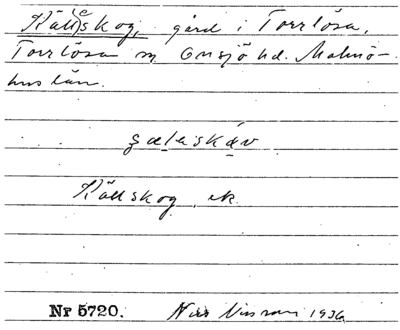 Käll(e)skog, gård i Torrlösa,
Torrlösa sn, Onsjö hd. Malmö-
hus län.
Källskog, ek
Nr 5720. Nils Nilsson 1936